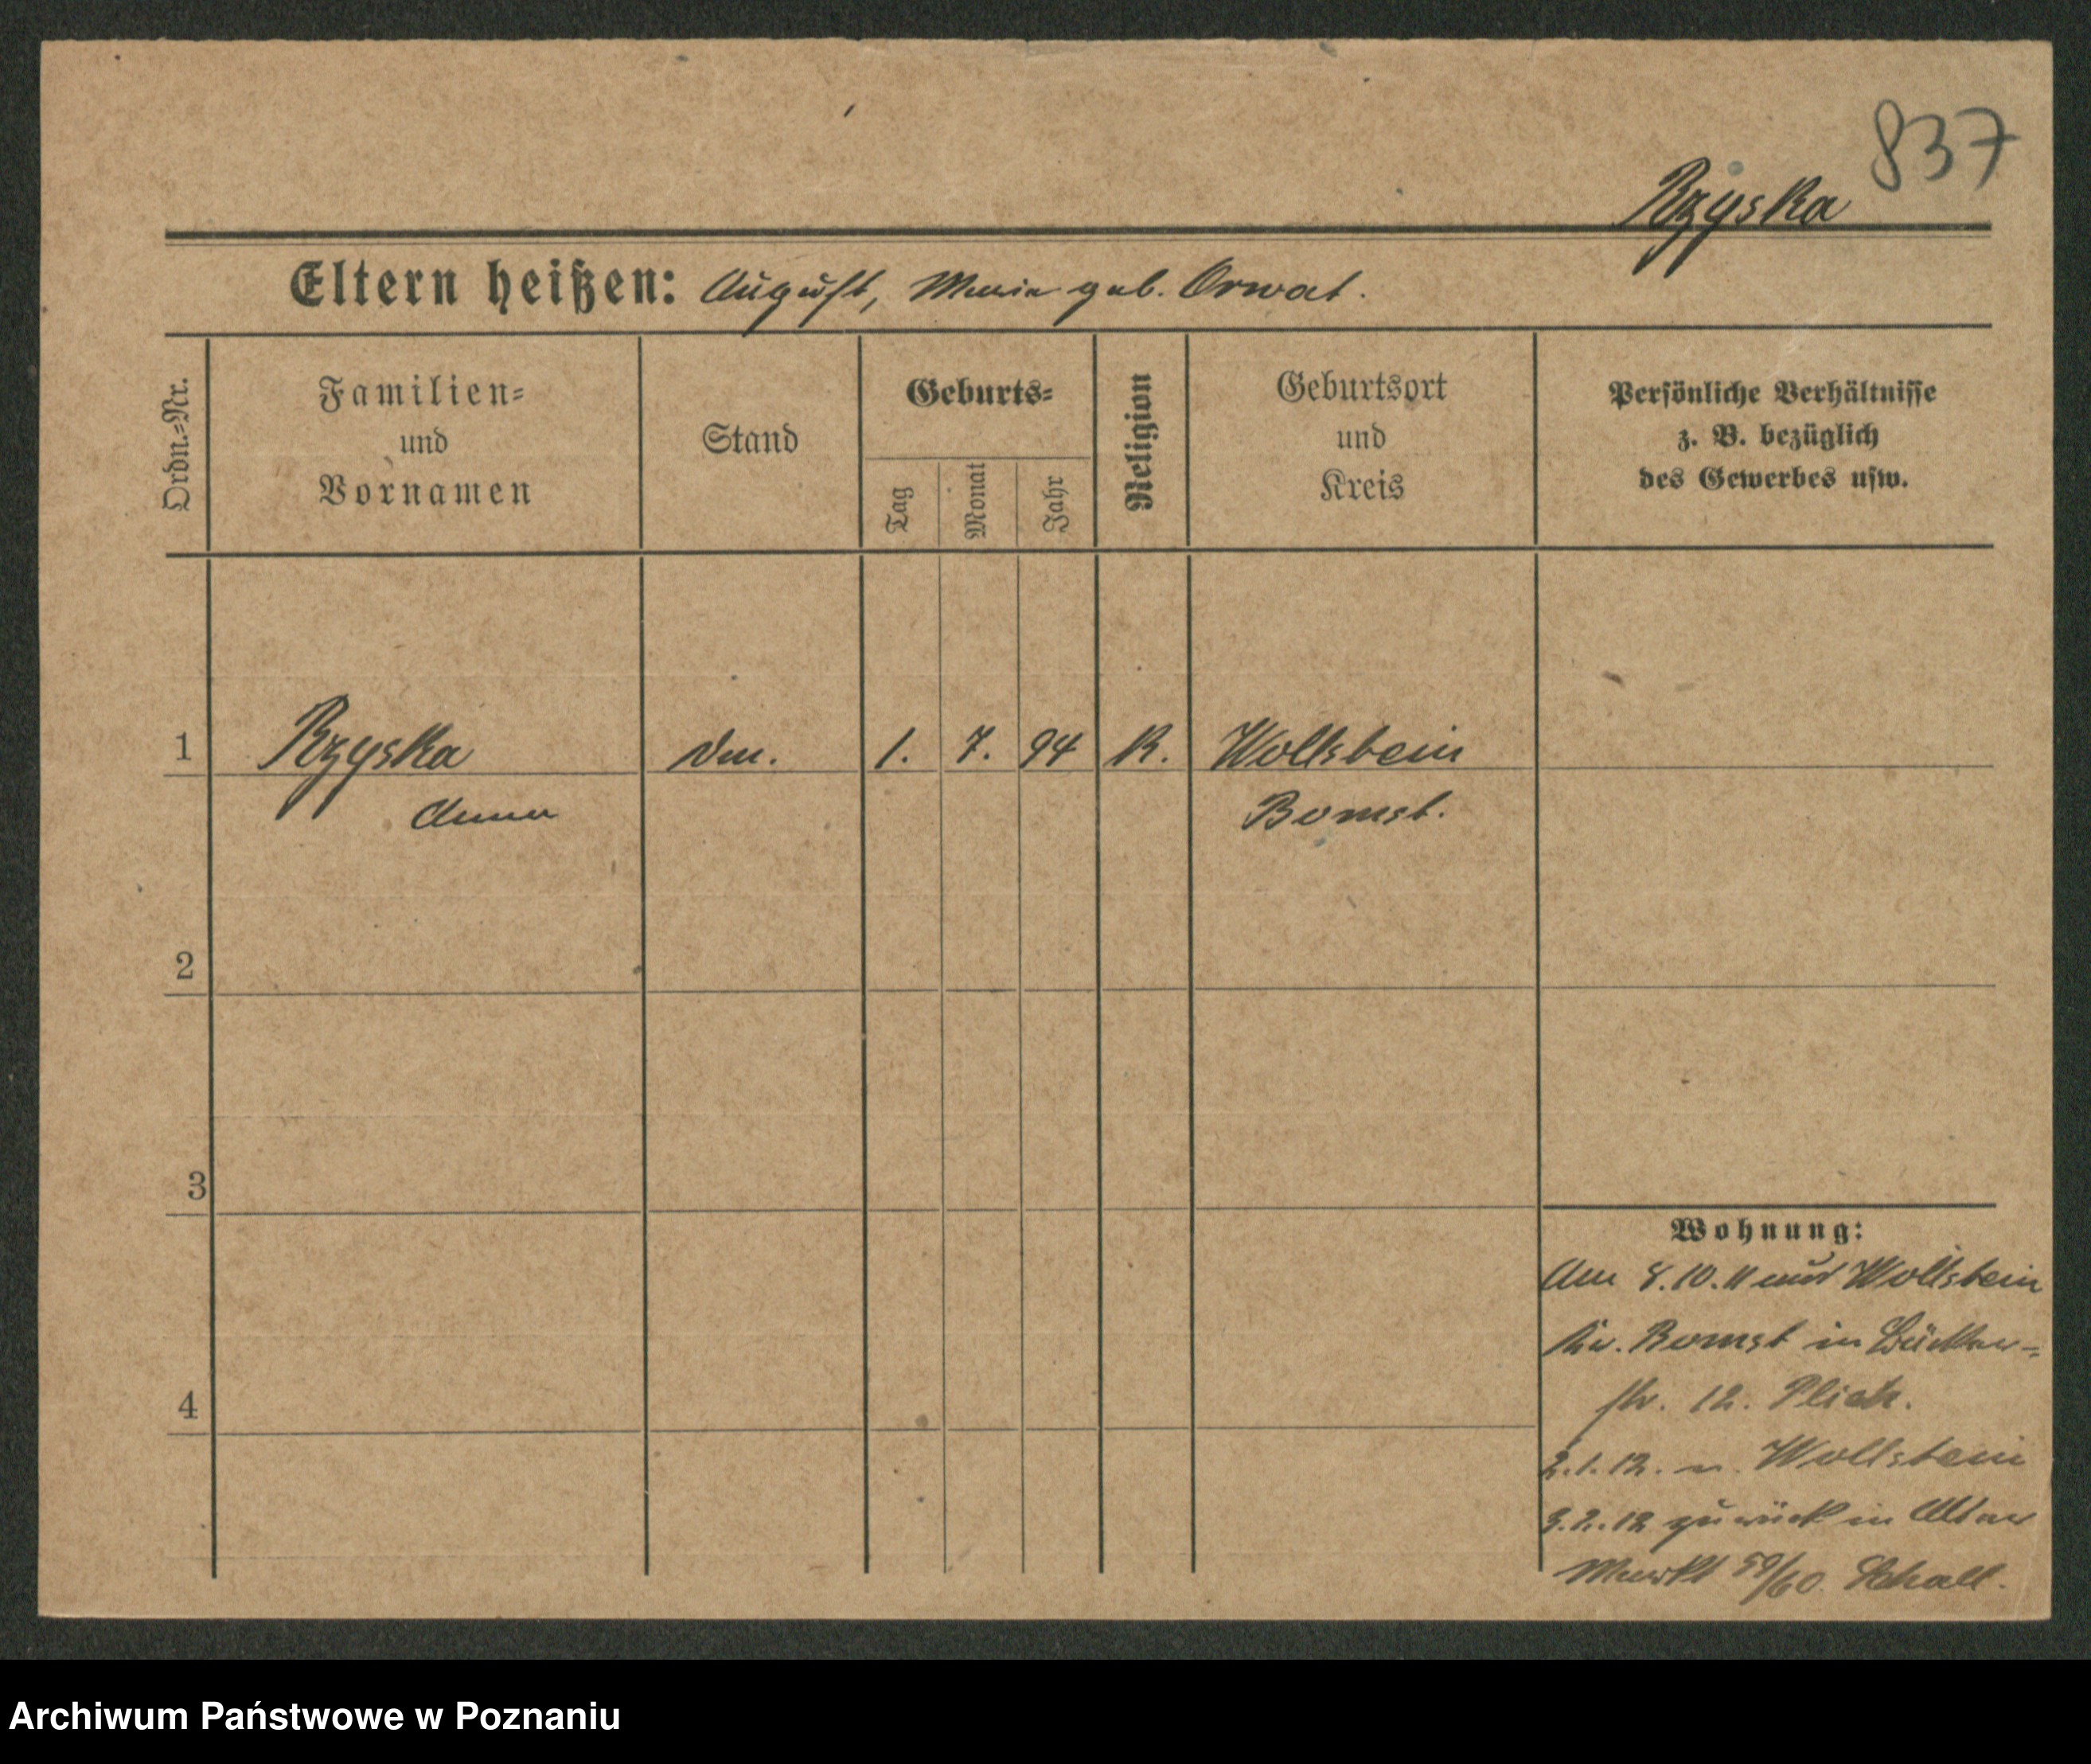 837
Rzyska
Eltern heißen: August, Maria geb. Orwat.
Ordn.-Nr.
Familien-
und
Vornamen
Stand
Geburts-
Tag
Monat
Jahr
Religion
Geburtsort
und
Kreis
Persönliche Verhältnisse
z. B. bezüglich
des Gewerbes usw.
1 Rzyska 1. 7. 94 K. Wollstein
Anna Bomst.
2
3
4
Wohnung:
Am 8.10.11 aus Wollstein
Kr. Bomst in
str. 12.
2.1.12. n. Wollstein
3.2.12 zurück in Alter
Markt 59/60. Schall.
Archiwum Państwowe w Poznaniu